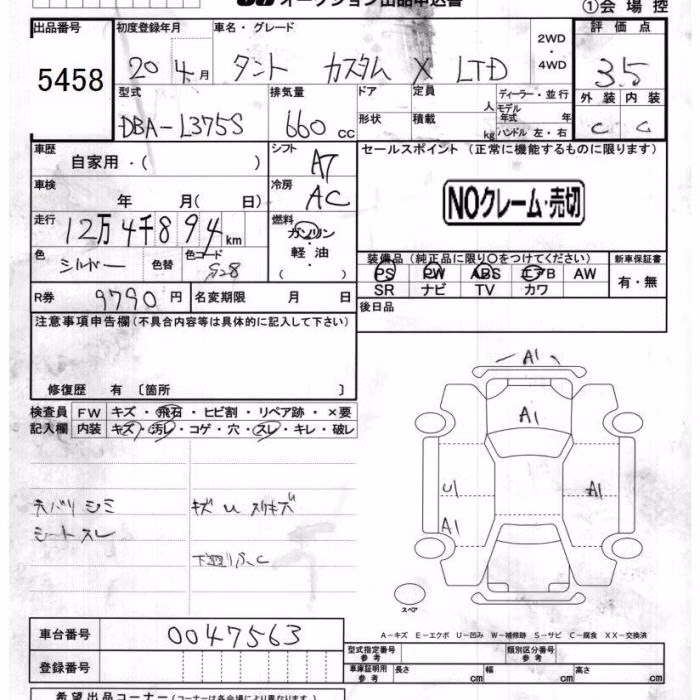 オークション出品申込書
①会場控
出品番号 初度登録年月 車名・グレード 評価点
5458 20年 4月 タント カスタム X LTD 2WD・4WD 3.5
型式 排気量 ドア 定員 人 ディーラー・並行 外装 内装
DBA-L375S 660cc 形状 積載 kg モデル年式 年 ハンドル 左・右 C C
車歴 シフト セールスポイント (正常に機能するものに限ります)
自家用・( ) AT
車検 冷房
年 月( 日) AC NOクレーム・売切
走行 燃料
12万4千894km ガソリン・軽油・( )
色 色替 色コード 装備品 (純正品に限り○をつけてください) 新車保証書
シルバー S28 PS PW ABS エアB AW 有・無
SR ナビ TV カワ
R券 9790円 名変期限 月 日 後日品
注意事項申告欄(不具合内容等は具体的に記入して下さい)
修復歴 有 〔箇所 〕
検査員 FW キズ・飛石・ヒビ割・リペア跡・×要
記入欄 内装 キズ・汚レ・コゲ・穴・スレ・キレ・破レ
A1
A1
U1 A1
A1
天バリ シミ キズ U スリキズ
シート スレ
スペア
A-キズ E-エクボ U-凹み W-補修跡 S-サビ C-腐食 XX-交換済
車台番号 0047563
型式指定番号 参考 類別区分番号 参考
登録番号 車庫証明用 参考 長さ cm 幅 cm 高さ cm
希望出品コーナー(コーナーは各会場により異なります)